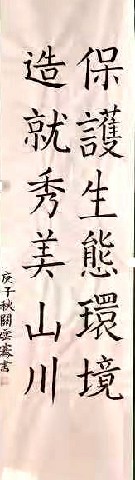 保護生態環境
造就秀美山川
庚子秋關雲霧書